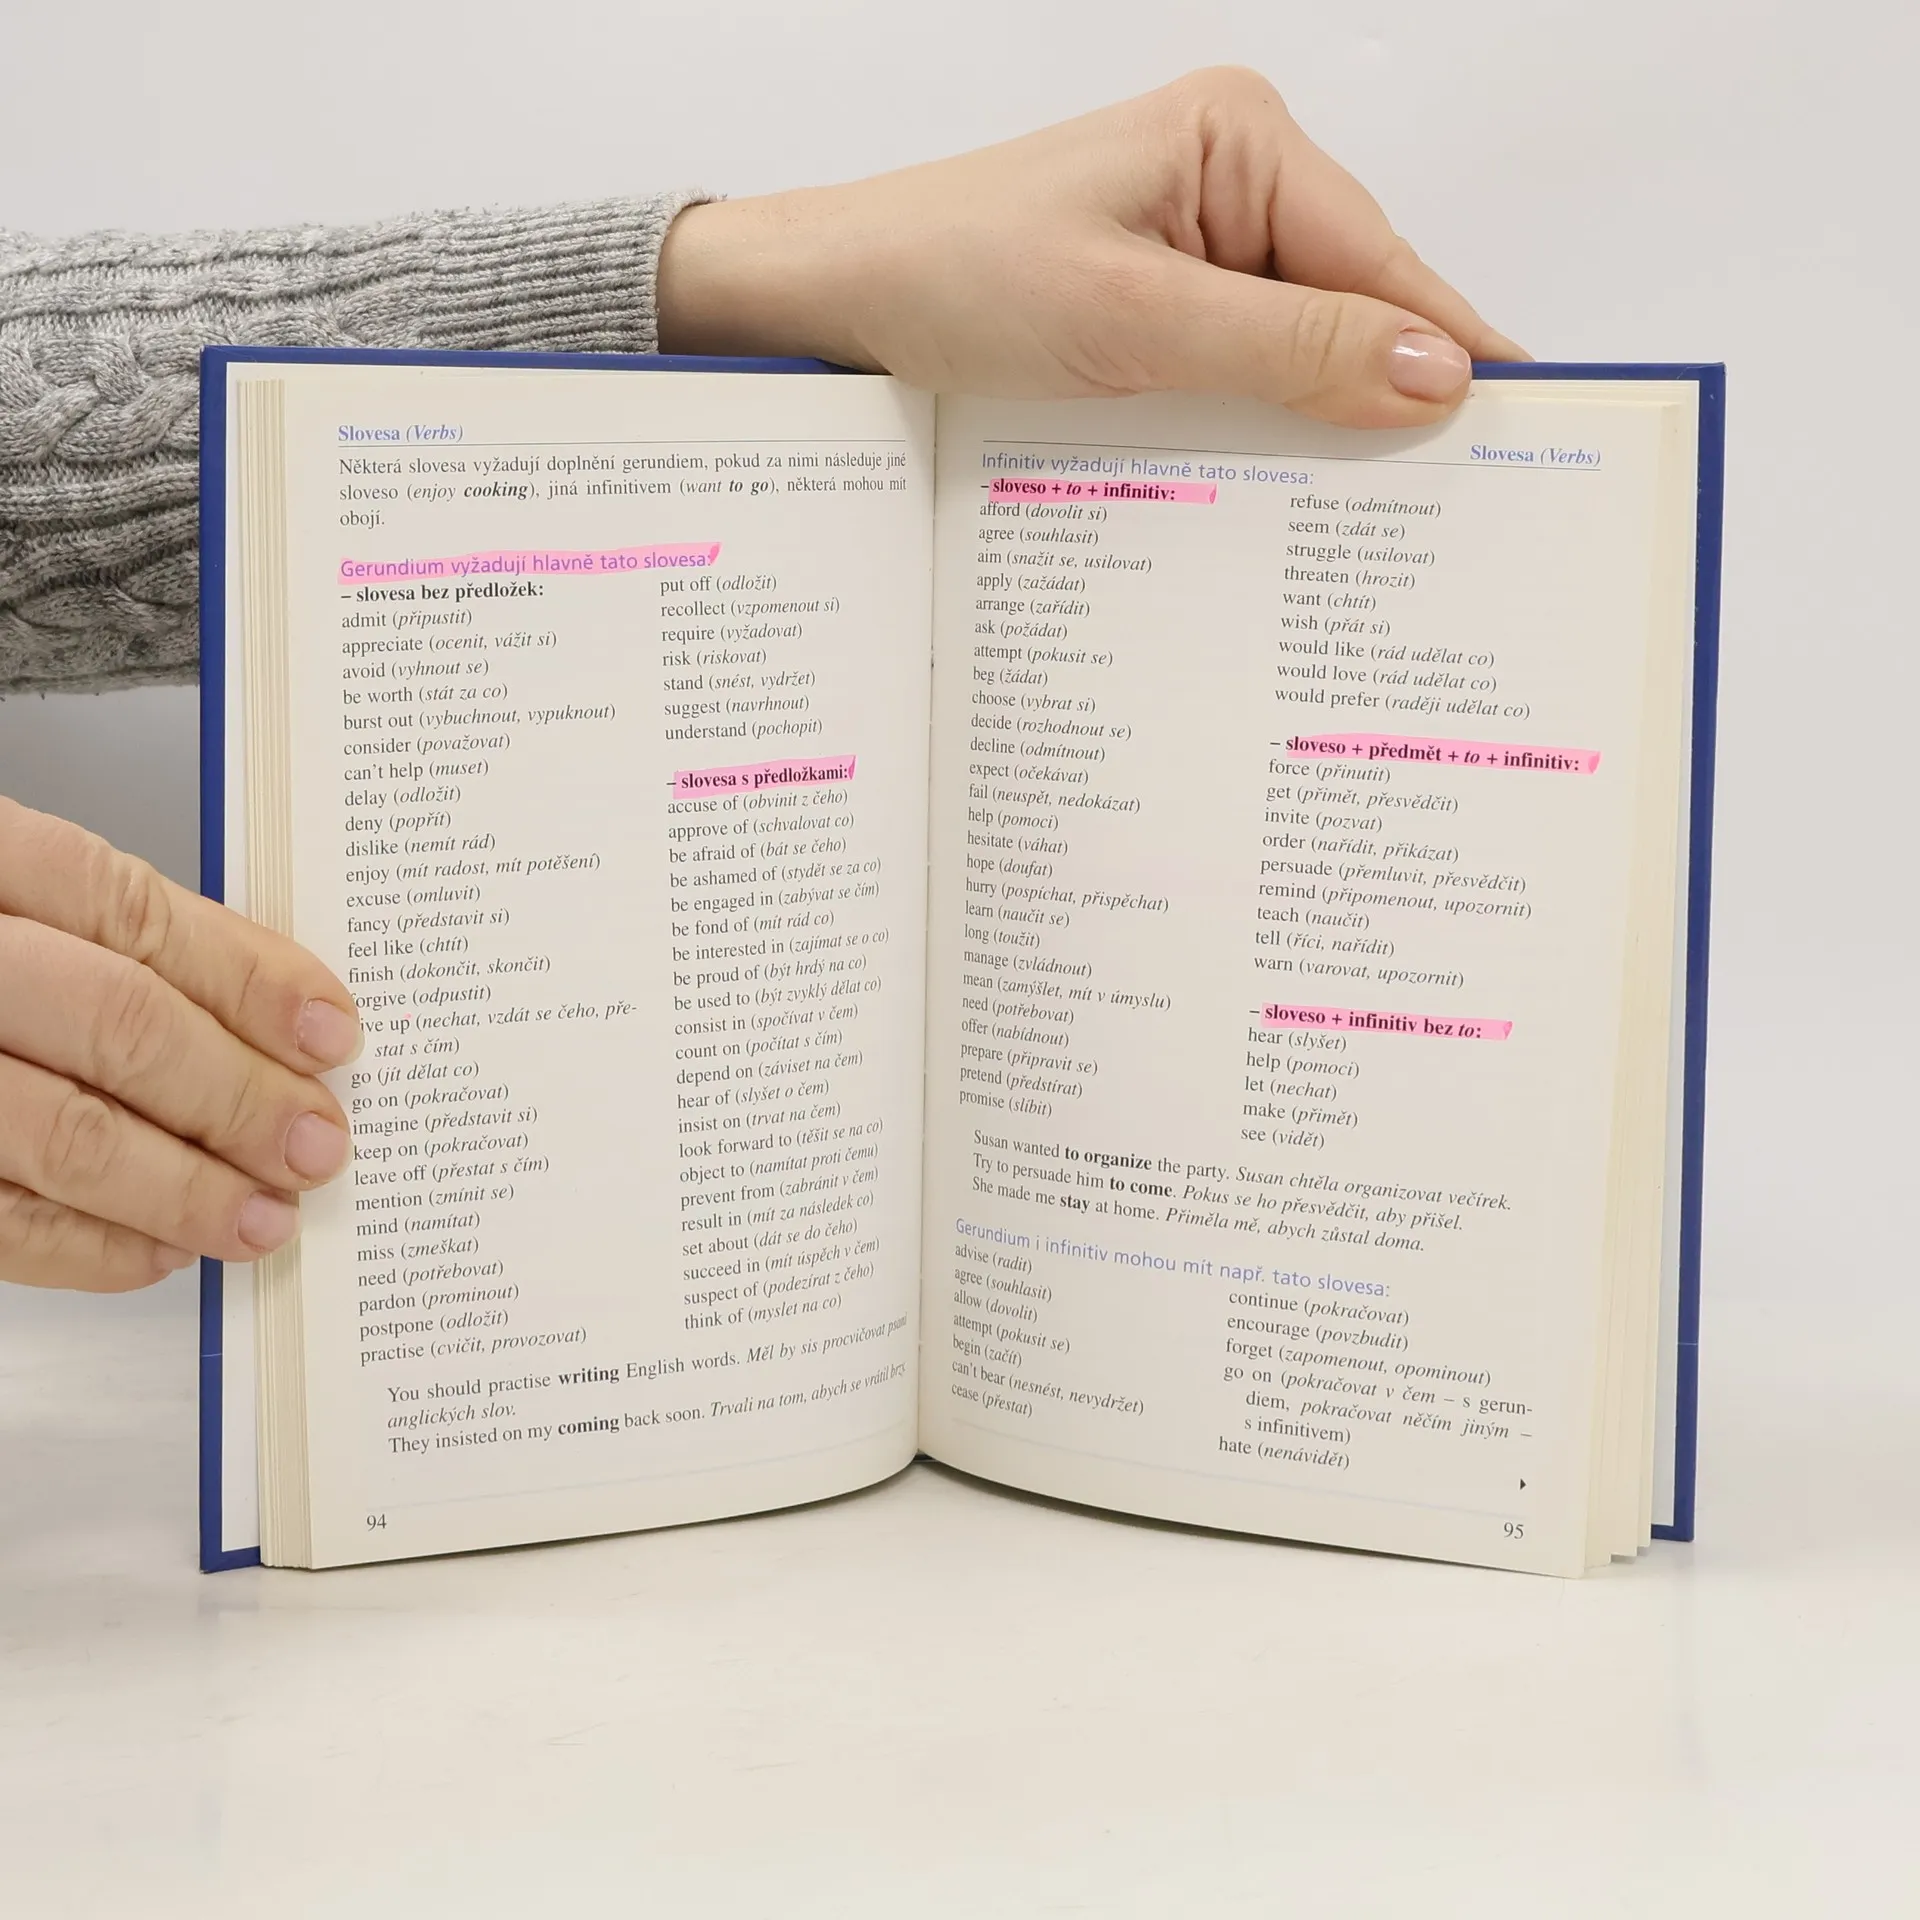 Slovesa (Verbs)
Některá slovesa vyžadují doplnění gerundiem, pokud za nimi následuje jiné
sloveso (enjoy cooking), jiná infinitivem (want to go), některá mohou mít
obojí.
Gerundium vyžadují hlavně tato slovesa:
– slovesa bez předložek:
admit (připustit)
appreciate (ocenit, vážit si)
avoid (vyhnout se)
be worth (stát za co)
burst out (vybuchnout, vypuknout)
consider (považovat)
can't help (muset)
delay (odložit)
deny (popřít)
dislike (nemít rád)
enjoy (mít radost, mít potěšení)
excuse (omluvit)
fancy (představit si)
feel like (chtít)
finish (dokončit, skončit)
forgive (odpustit)
ive up (nechat, vzdát se čeho, pře-
stat s čím)
go (jít dělat co)
go on (pokračovat)
imagine (představit si)
keep on (pokračovat)
leave off (přestat s čím)
mention (zmínit se)
mind (namítat)
miss (zmeškat)
need (potřebovat)
pardon (prominout)
postpone (odložit)
practise (cvičit, provozovat)
put off (odložit)
recollect (vzpomenout si)
require (vyžadovat)
risk (riskovat)
stand (snést, vydržet)
suggest (navrhnout)
understand (pochopit)
– slovesa s předložkami:
accuse of (obvinit z čeho)
approve of (schvalovat co)
be afraid of (bát se čeho)
be ashamed of (stydět se za co)
be engaged in (zabývat se čím)
be fond of (mít rád co)
be interested in (zajímat se o co)
be proud of (být hrdý na co)
be used to (být zvyklý dělat co)
consist in (spočívat v čem)
count on (počítat s čím)
depend on (záviset na čem)
hear of (slyšet o čem)
insist on (trvat na čem)
look forward to (těšit se na co)
object to (namítat proti čemu)
prevent from (zabránit v čem)
result in (mít za následek co)
set about (dát se do čeho)
succeed in (mít úspěch v čem)
suspect of (podezírat z čeho)
think of (myslet na co)
You should practise writing English words. Měl by sis procvičovat psaní
anglických slov.
They insisted on my coming back soon. Trvali na tom, abych se vrátil brzy.
94
Slovesa (Verbs)
Infinitiv vyžadují hlavně tato slovesa:
– sloveso + to + infinitiv:
afford (dovolit si)
agree (souhlasit)
aim (snažit se, usilovat)
apply (zažádat)
arrange (zařídit)
ask (požádat)
attempt (pokusit se)
beg (žádat)
choose (vybrat si)
decide (rozhodnout se)
decline (odmítnout)
expect (očekávat)
fail (neuspět, nedokázat)
help (pomoci)
hesitate (váhat)
hope (doufat)
hurry (pospíchat, přispěchat)
learn (naučit se)
long (toužit)
manage (zvládnout)
mean (zamýšlet, mít v úmyslu)
need (potřebovat)
offer (nabídnout)
prepare (připravit se)
pretend (předstírat)
promise (slíbit)
refuse (odmítnout)
seem (zdát se)
struggle (usilovat)
threaten (hrozit)
want (chtít)
wish (přát si)
would like (rád udělat co)
would love (rád udělat co)
would prefer (raději udělat co)
– sloveso + předmět + to + infinitiv:
force (přinutit)
get (přimět, přesvědčit)
invite (pozvat)
order (nařídit, přikázat)
persuade (přemluvit, přesvědčit)
remind (připomenout, upozornit)
teach (naučit)
tell (říci, nařídit)
warn (varovat, upozornit)
– sloveso + infinitiv bez to:
hear (slyšet)
help (pomoci)
let (nechat)
make (přimět)
see (vidět)
Susan wanted to organize the party. Susan chtěla organizovat večírek.
Try to persuade him to come. Pokus se ho přesvědčit, aby přišel.
She made me stay at home. Přiměla mě, abych zůstal doma.
Gerundium i infinitiv mohou mít např. tato slovesa:
advise (radit)
agree (souhlasit)
allow (dovolit)
attempt (pokusit se)
begin (začít)
can't bear (nesnést, nevydržet)
cease (přestat)
continue (pokračovat)
encourage (povzbudit)
forget (zapomenout, opominout)
go on (pokračovat v čem – s gerun-
diem, pokračovat něčím jiným –
s infinitivem)
hate (nenávidět)
95